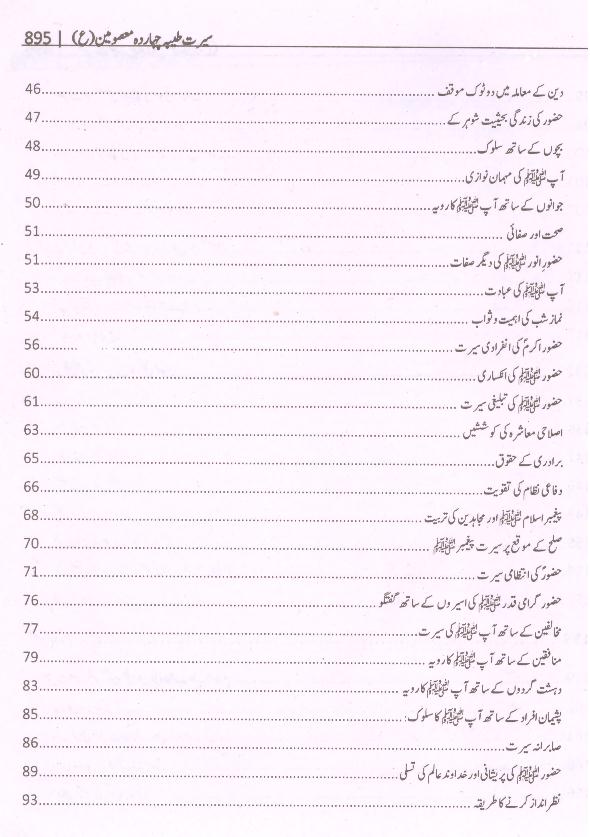 سیرت طیبہ چہاردہ معصومین(ع) | 895
دین کے معاملہ میں دو ٹوک موقف ........ 46
حضور کی زندگی بحیثیت شوہر کے ........ 47
بچوں کے ساتھ سلوک ........ 48
آپ ﷺ کی مہمان نوازی ........ 49
جوانوں کے ساتھ آپ ﷺ کا رویہ ........ 50
صحت اور صفائی ........ 51
حضور انور ﷺ کی دیگر صفات ........ 51
آپ ﷺ کی عبادت ........ 53
نماز شب کی اہمیت و ثواب ........ 54
حضور اکرمؐ کی انفرادی سیرت ........ 56
حضور ﷺ کی انکساری ........ 60
حضور ﷺ کی تبلیغی سیرت ........ 61
اصلاحی معاشرہ کی کوششیں ........ 63
برادری کے حقوق ........ 65
دفاعی نظام کی تقویت ........ 66
پیغمبر اسلام ﷺ اور مجاہدین کی تربیت ........ 68
صلح کے موقع پر سیرت پیغمبر ﷺ ........ 70
حضورؐ کی انتظامی سیرت ........ 71
حضور گرامی قدر ﷺ کی اسیروں کے ساتھ گفتگو ........ 76
مخالفین کے ساتھ آپ ﷺ کی سیرت ........ 77
منافقین کے ساتھ آپ ﷺ کا رویہ ........ 79
دہشت گردوں کے ساتھ آپ ﷺ کا رویہ ........ 83
پشیمان افراد کے ساتھ آپ ﷺ کا سلوک: ........ 85
صابرانہ سیرت ........ 86
حضور ﷺ کی پریشانی اور خداوند عالم کی تسلی ........ 89
نظر انداز کرنے کا طریقہ ........ 93